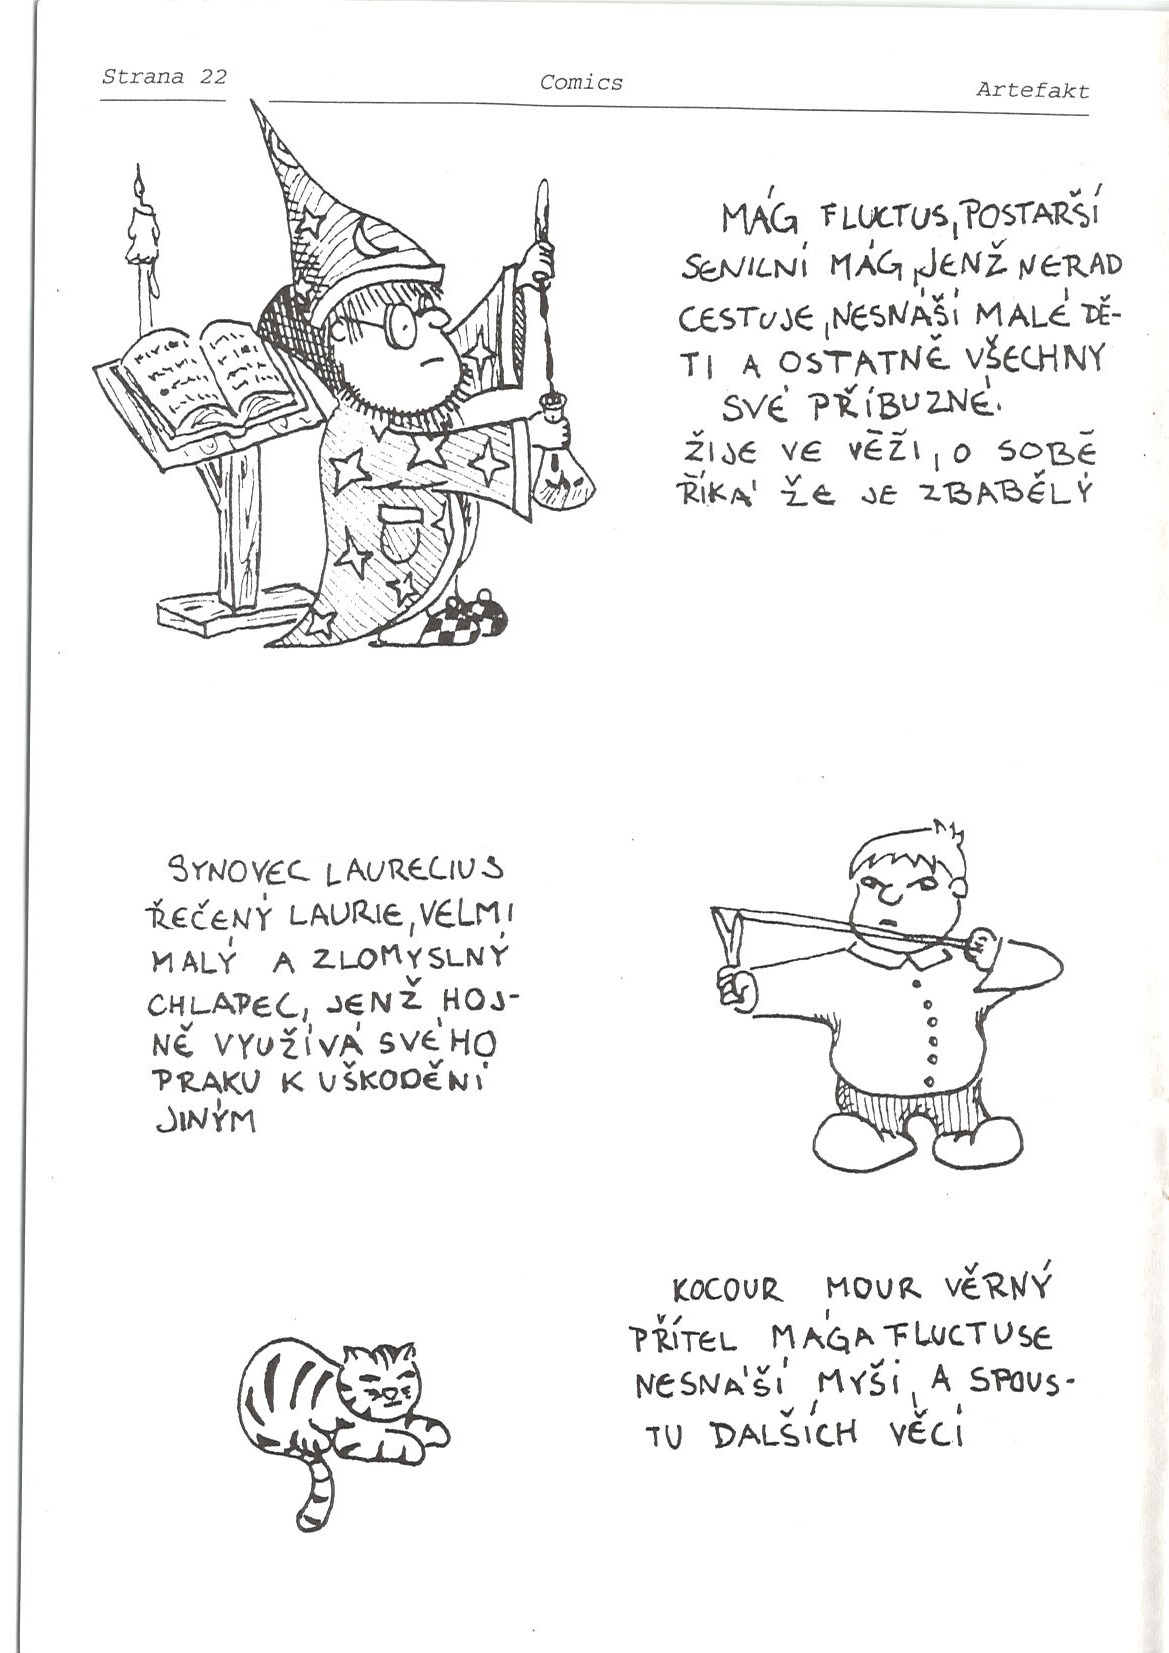 Strana 22 Comics Artefakt
MÁG FLUCTUS, POSTARŠÍ
SENILNÍ MÁG, JENŽ NERAD
CESTUJE, NESNÁŠÍ MALÉ DĚ-
TI A OSTATNĚ VŠECHNY
SVÉ PŘÍBUZNÉ.
ŽIJE VE VĚŽI, O SOBĚ
ŘÍKÁ ŽE JE ZBABĚLÝ
SYNOVEC LAURECIUS
ŘEČENÝ LAURIE, VELMI
MALÝ A ZLOMYSLNÝ
CHLAPEC, JENŽ HOJ-
NĚ VYUŽÍVÁ SVÉHO
PRAKU K UŠKODĚNÍ
JINÝM
KOCOUR MOUR VĚRNÝ
PŘÍTEL MÁGA FLUCTUSE
NESNÁŠÍ MYŠI, A SPOUS-
TU DALŠÍCH VĚCÍ